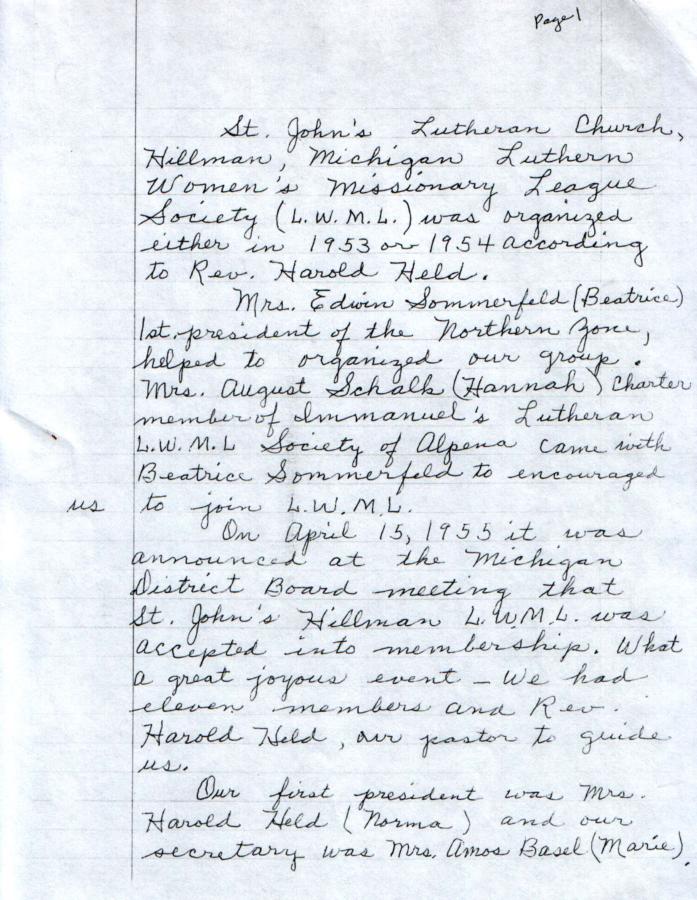 Page 1
St. John's Lutheran Church,
Hillman, Michigan Luthern
Women's Missionary League
Society (L.W.M.L.) was organized
either in 1953 or 1954 according
to Rev. Harold Held.
Mrs. Edwin Sommerfeld (Beatrice)
1st. president of the Northern Zone,
helped to organized our group.
Mrs. August Schalk (Hannah) Charter
member of Immanuel's Lutheran
L.W.M.L Society of Alpena came with
Beatrice Sommerfeld to encouraged
us to join L.W.M.L.
On April 15, 1955 it was
announced at the Michigan
District Board meeting that
St. John's Hillman L.W.M.L. was
accepted into membership. What
a great joyous event - We had
eleven members and Rev.
Harold Held, our pastor to guide
us.
Our first president was Mrs.
Harold Held (Norma) and our
secretary was Mrs. Amos Basel (Marie).